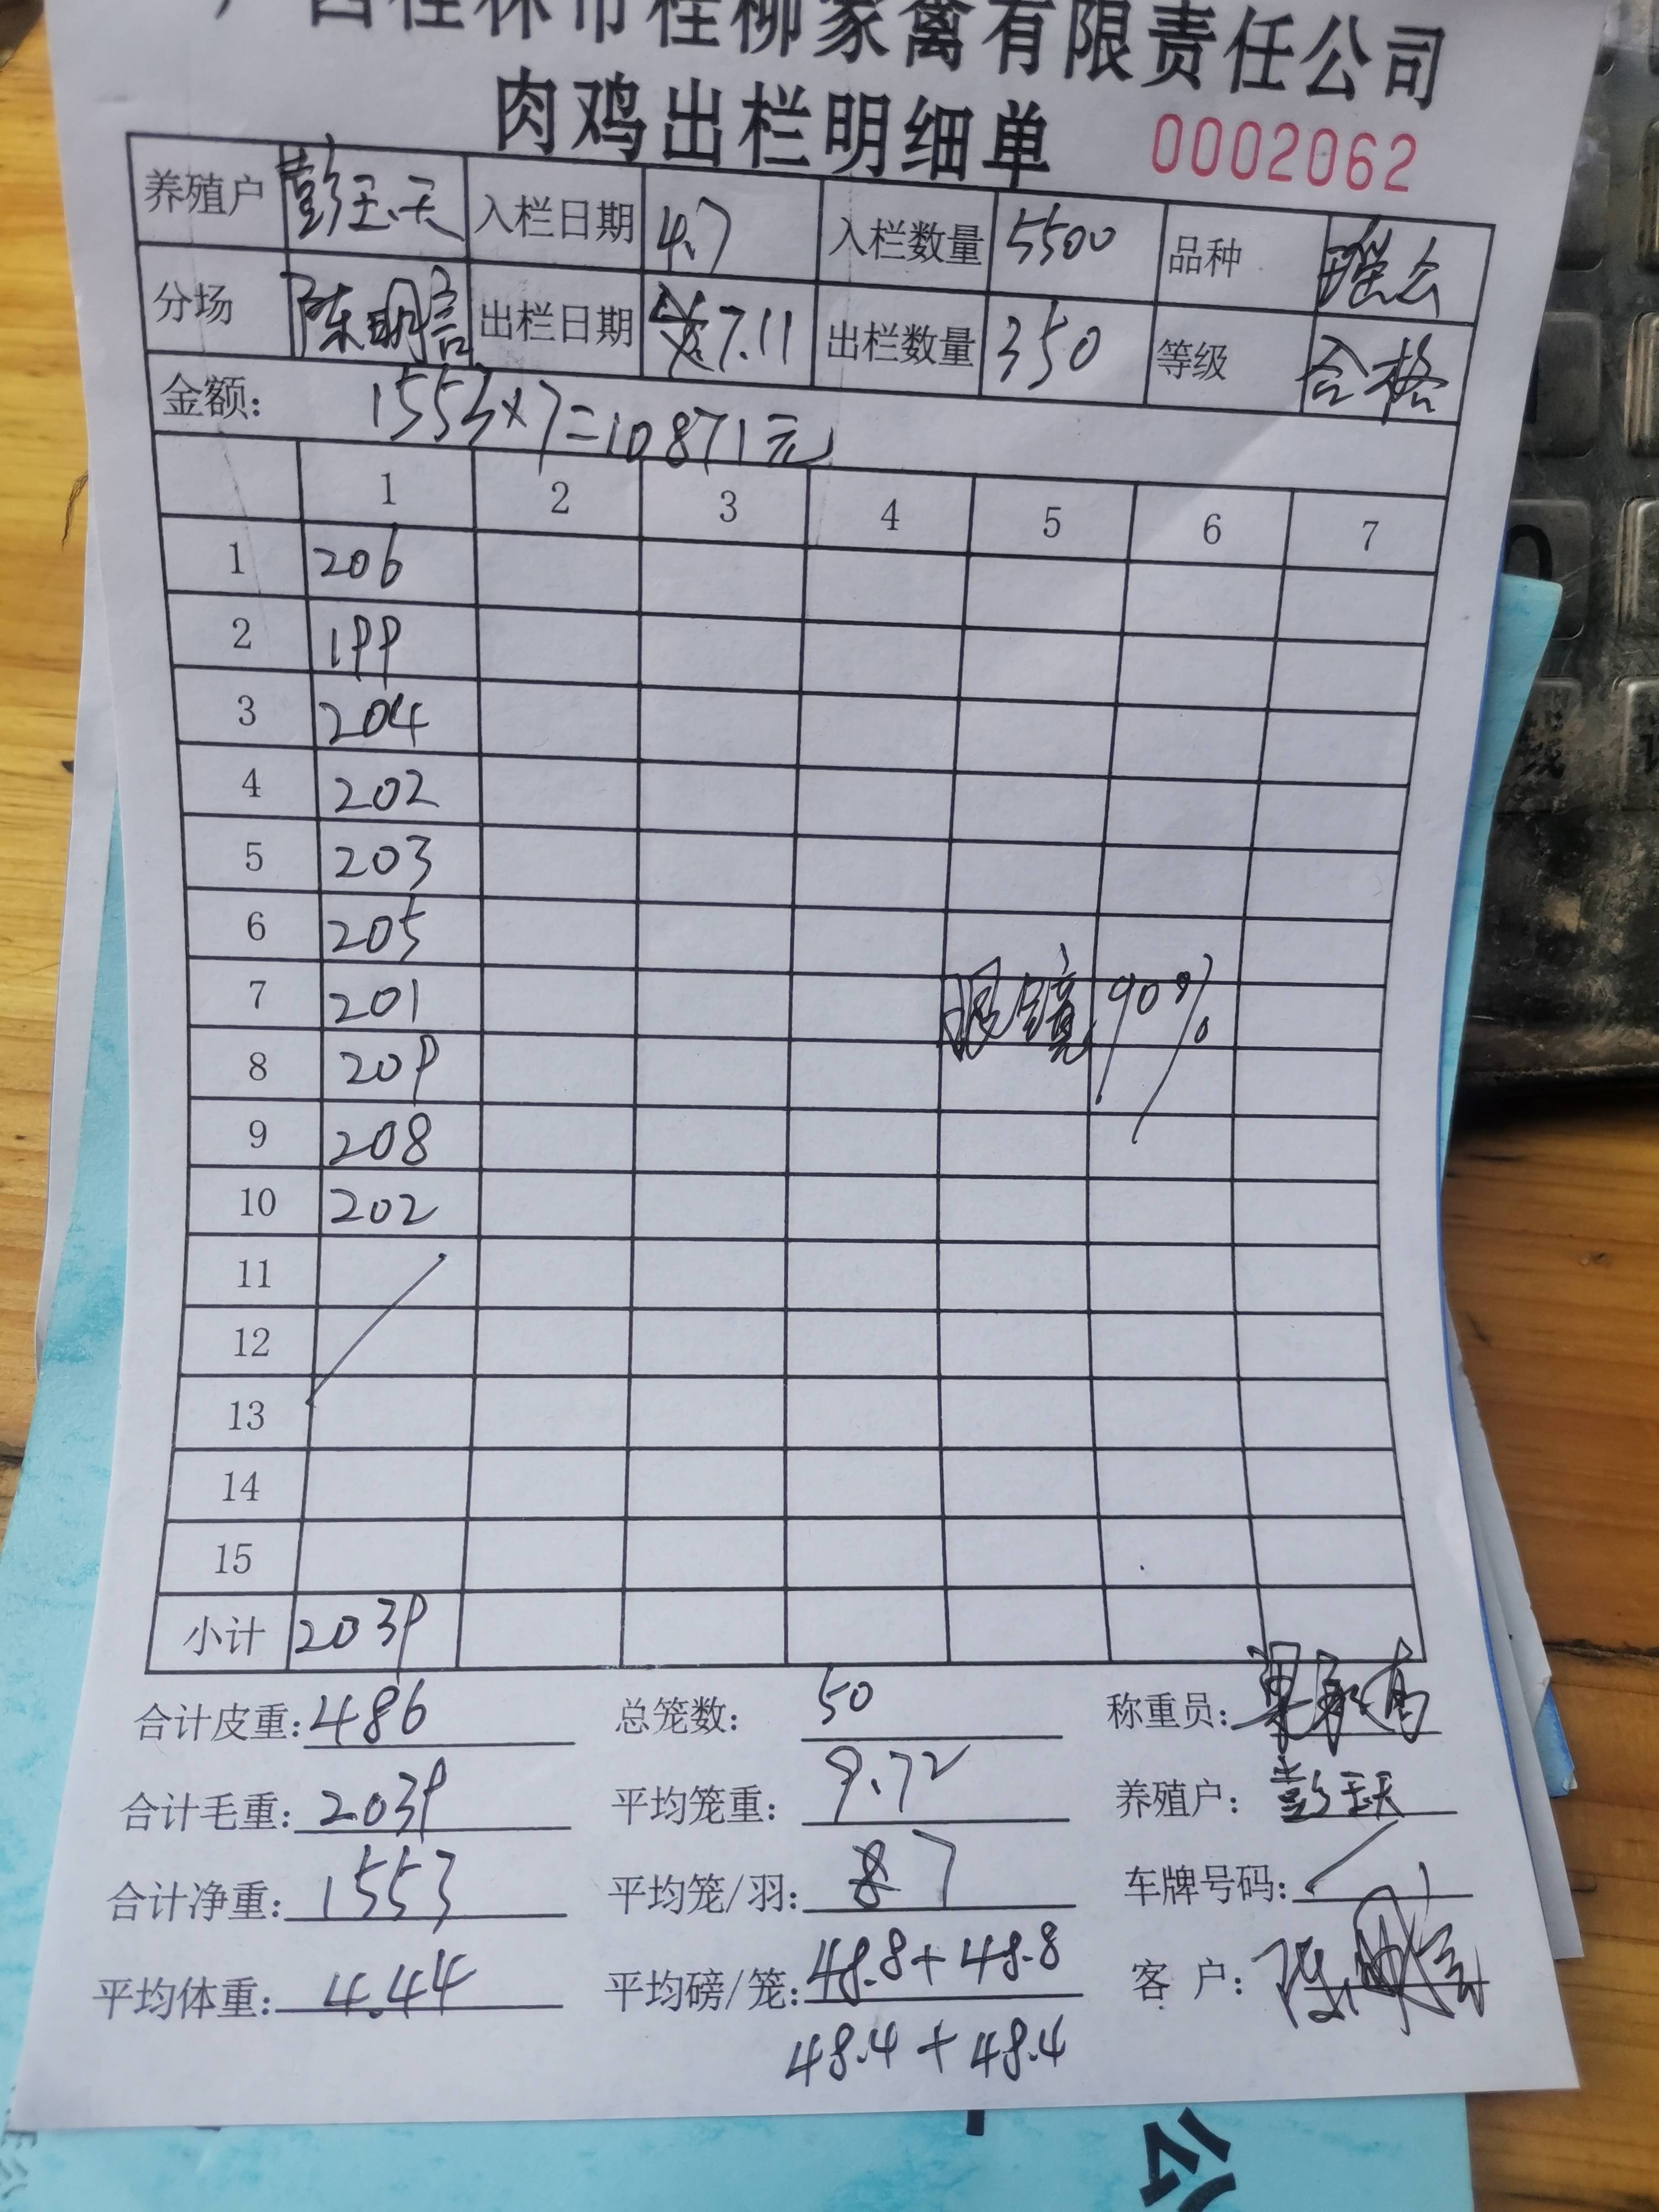 广西桂林市桂柳家禽有限责任公司
肉鸡出栏明细单 0002062
养殖户 彭玉天 入栏日期 4.7 入栏数量 5500 品种 瑶公
分场 陈明言 出栏日期 7.11 出栏数量 350 等级 合格
金额: 1553×7=10871元
1 2 3 4 5 6 7
1 206
2 199
3 204
4 202
5 203
6 205
7 201 眼镜 90%
8 209
9 208
10 202
11
12
13
14
15
小计 2039
合计皮重: 486 总笼数: 50 称重员:
合计毛重: 2039 平均笼重: 9.72 养殖户: 彭玉天
合计净重: 1553 平均笼/羽: 7 车牌号码:
平均体重: 4.44 平均磅/笼: 48.8+48.8 客 户: 陈明言
48.4+48.4
公